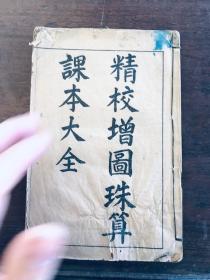 精校增圖珠算
課本大全